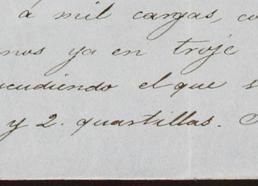 á mil cargas, co
nos ya en troje
cudiendo el que s
y 2. quartillas.